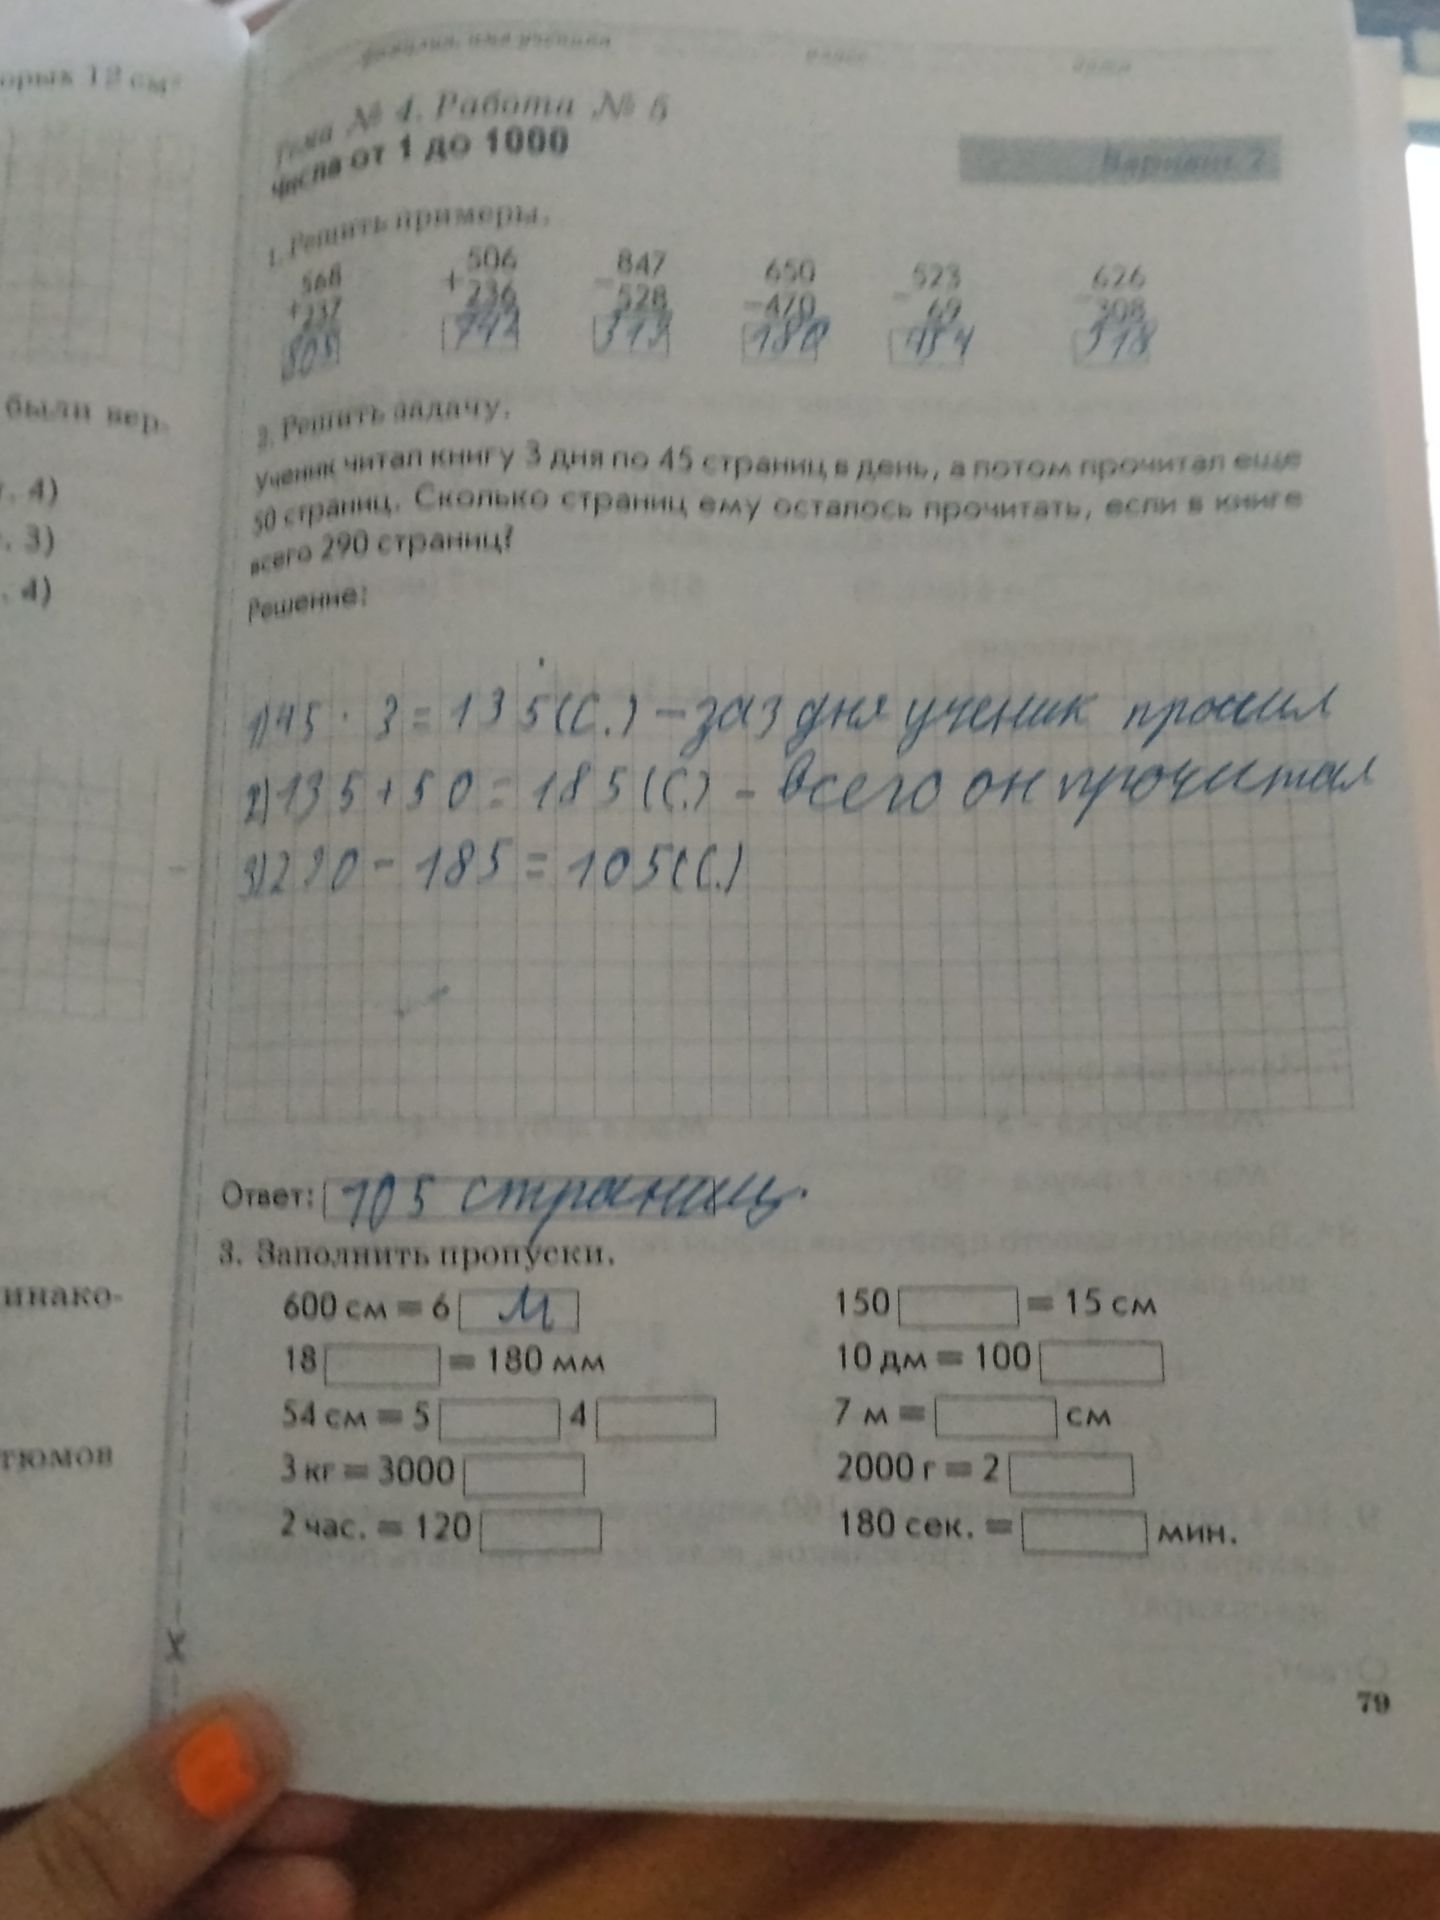 орых 12 см
были вер-
. 4)
. 3)
. 4)
инако-
тюмов
фамилия, имя ученика класс дата
Тема № 4. Работа № 5
Числа от 1 до 1000
Вариант 2
1. Решить примеры.
568 506 847 650 523 626
+237 +236 −528 −470 − 69 −308
805 742 319 180 454 318
2. Решить задачу.
Ученик читал книгу 3 дня по 45 страниц в день, а потом прочитал еще
50 страниц. Сколько страниц ему осталось прочитать, если в книге
всего 290 страниц?
Решение:
1) 45 · 3 = 135 (с.) – за 3 дня ученик
2) 135 + 50 = 185 (с.) – всего он прочитал
3) 290 - 185 = 105 (с.)
Ответ: 105 страниц.
3. Заполнить пропуски.
600 см = 6 м 150 = 15 см
18 = 180 мм 10 дм = 100
54 см = 5 4 7 м = см
3 кг = 3000 2000 г = 2
2 час. = 120 180 сек. = мин.
79